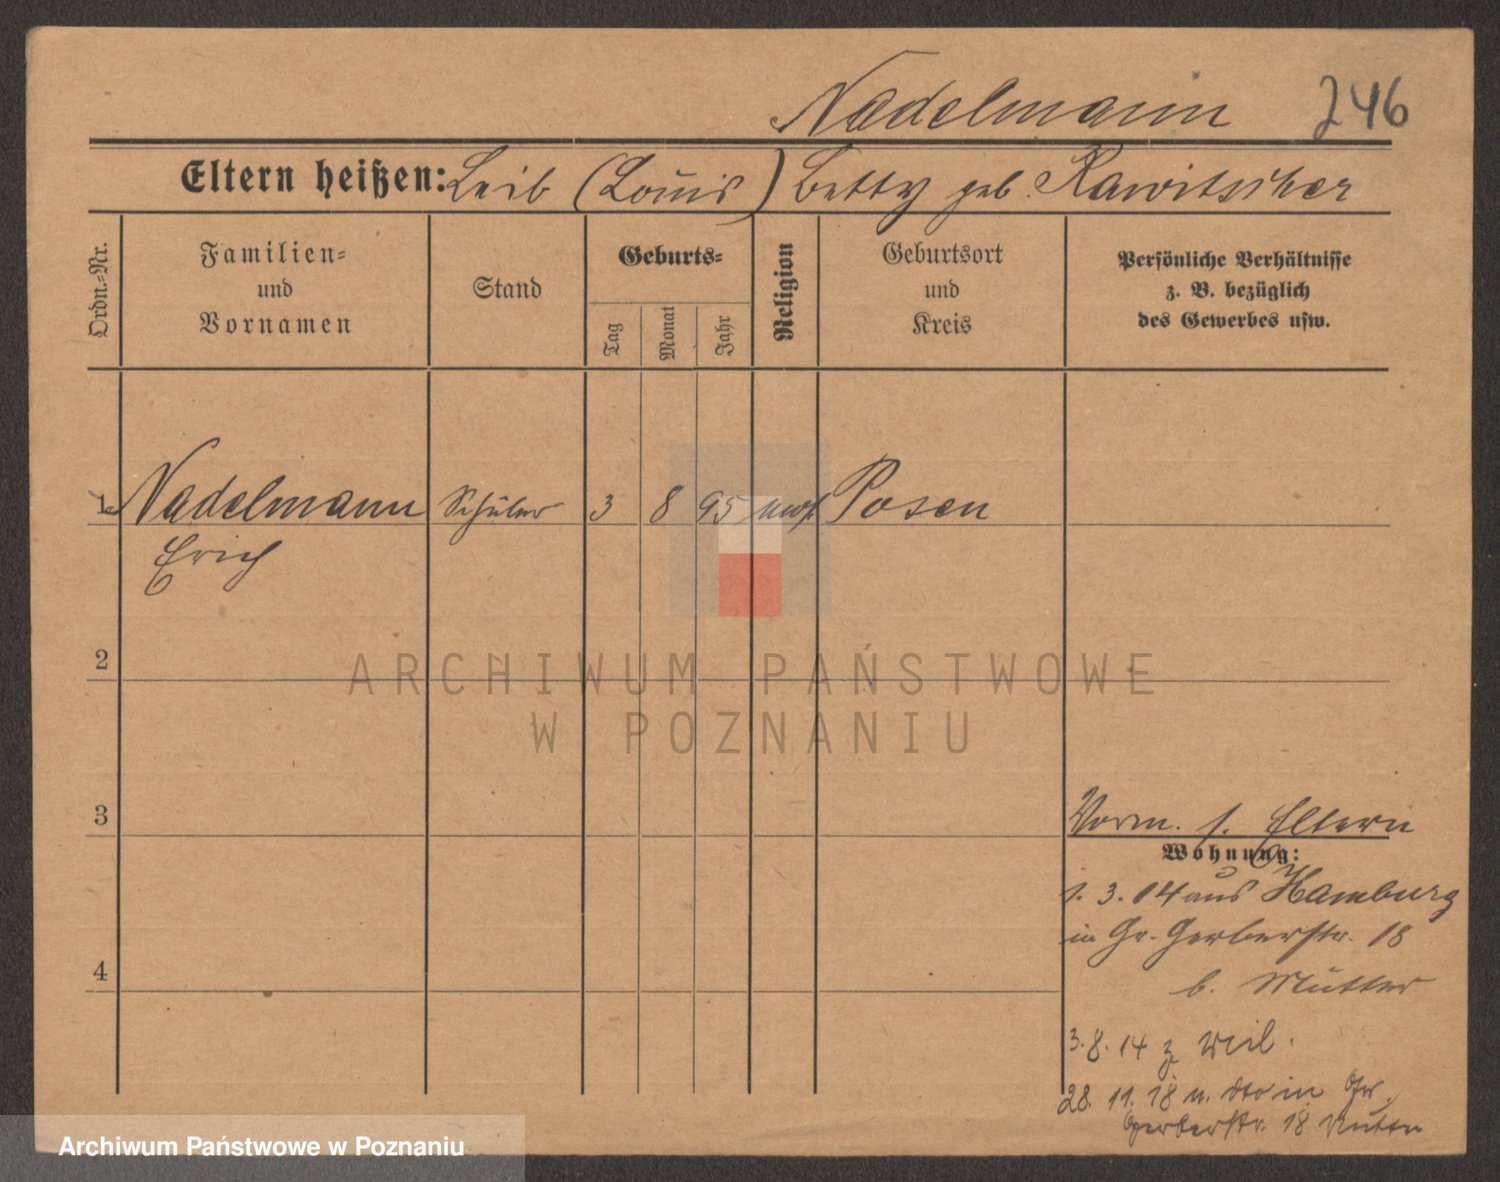 Nadelmann 246
Eltern heißen: Leib (Louis) Betty geb. Rawitscher
Ordn.-Nr.
Familien-
und
Vornamen
Stand
Geburts-
Tag
Monat
Jahr
Religion
Geburtsort
und
Kreis
Persönliche Verhältnisse
z. B. bezüglich
des Gewerbes usw.
1 Nadelmann Schüler 3 8 95 mos. Posen
Erich
2
3
4
Vorm. s. Eltern
Wohnung:
1. 3. 14 aus Hamburg
in Gr. Gerberstr. 18
b. Mutter
3. 8. 14 z. Mil.
28. 11. 18 v. dto in Gr.
Gerberstr. 18 Mutter
ARCHIWUM PAŃSTWOWE
W POZNANIU
Archiwum Państwowe w Poznaniu